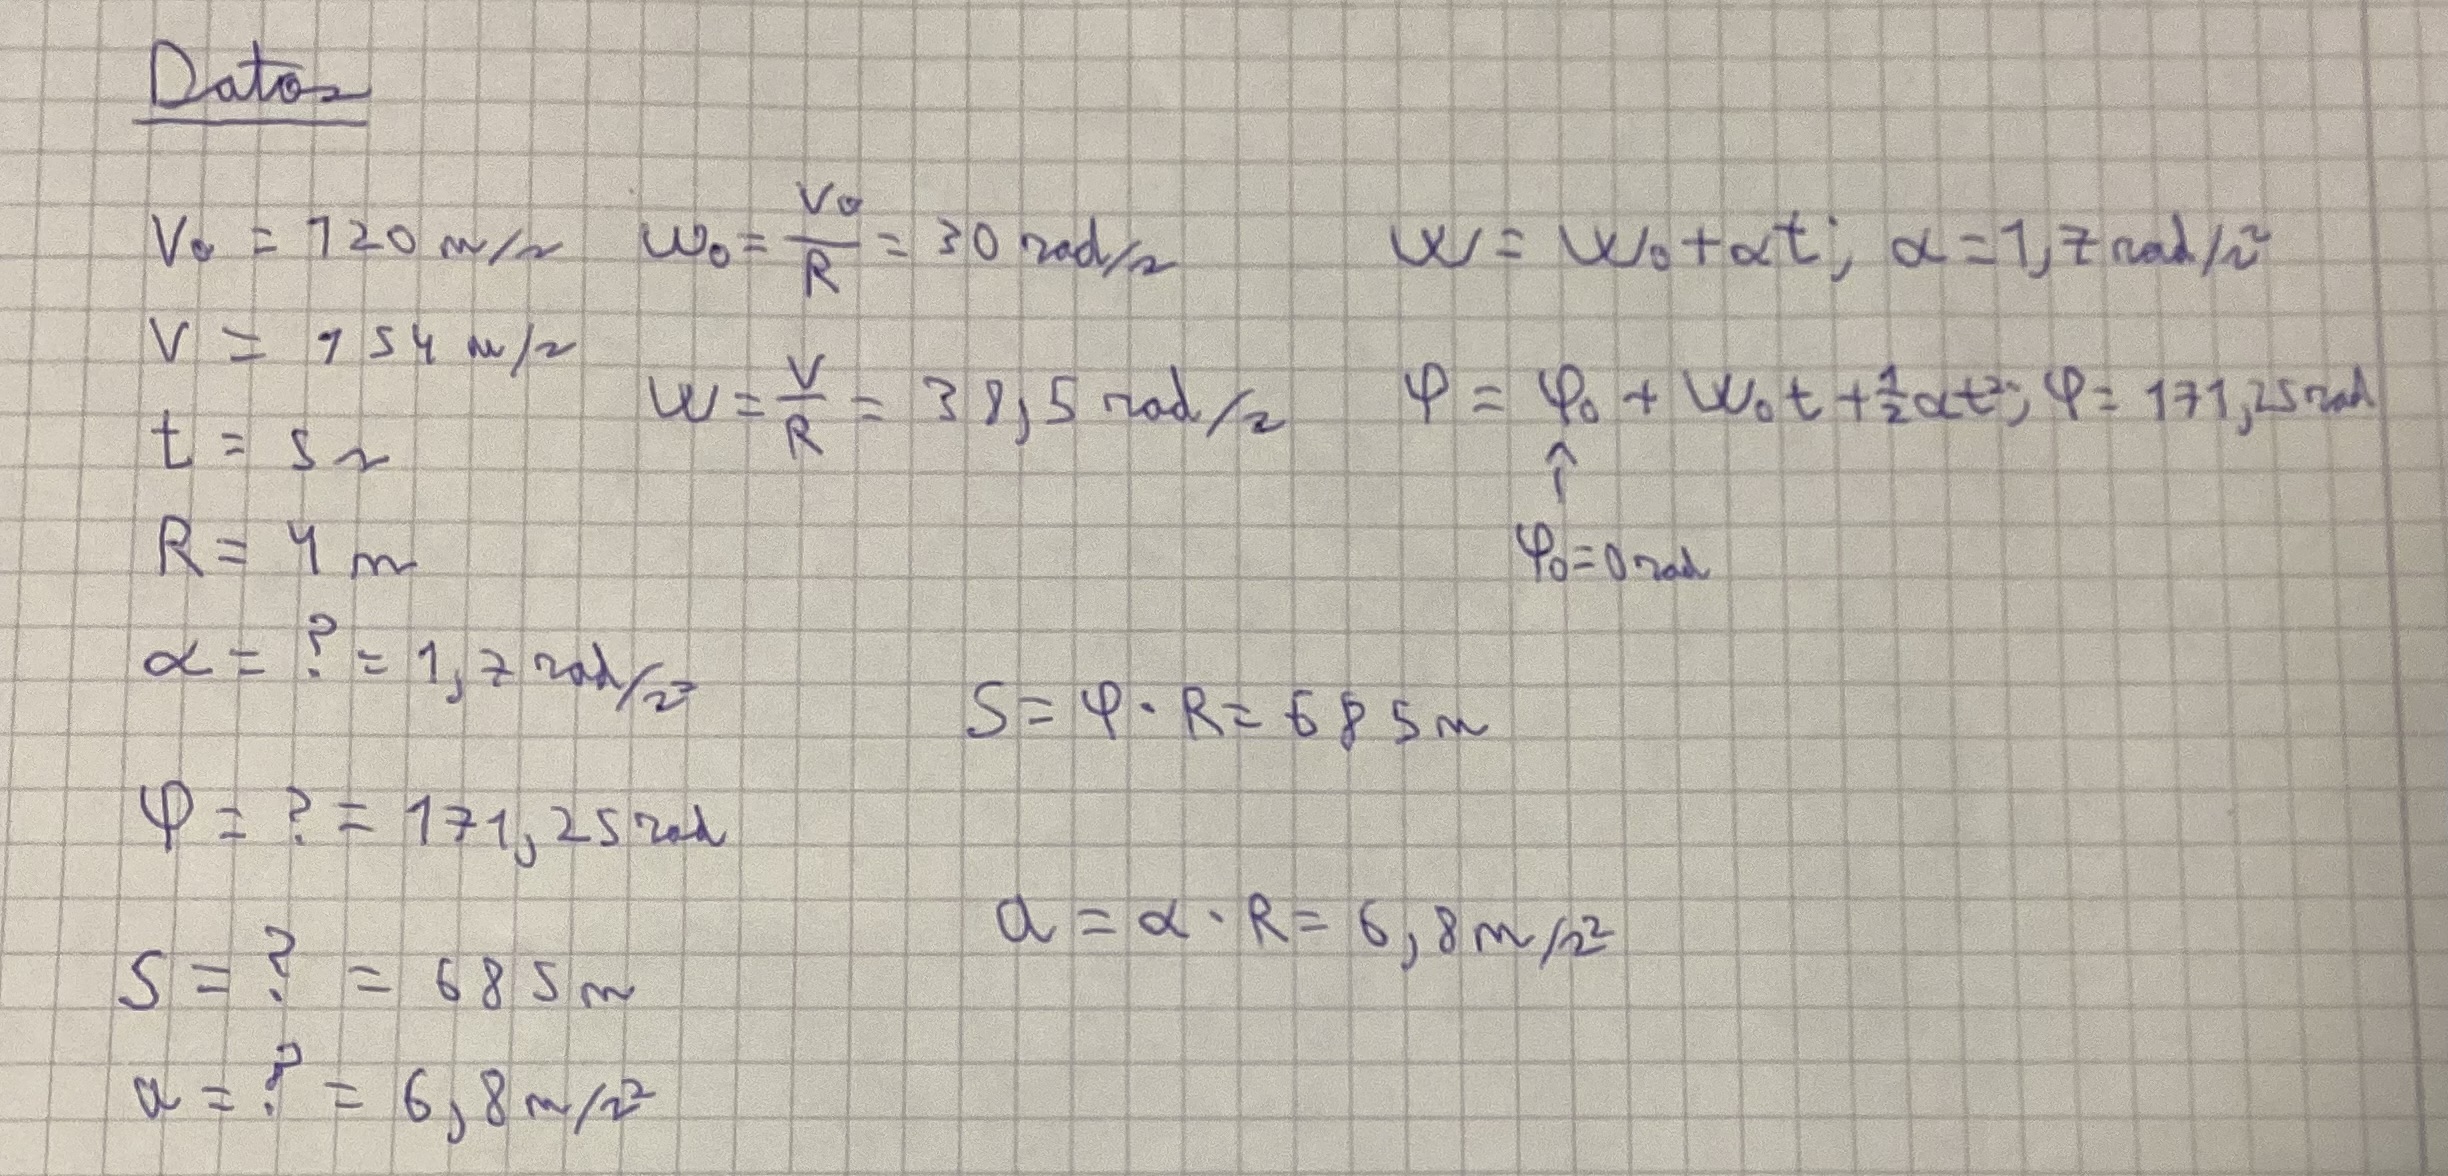 Datos
V₀ = 120 m/s
V = 154 m/s
t = 5 s
R = 4 m
α = ? = 1,7 rad/s²
φ = ? = 171,25 rad
S = ? = 685 m
a = ? = 6,8 m/s²
ω₀ = V₀/R = 30 rad/s
ω = V/R = 38,5 rad/s
ω = ω₀ + αt; α = 1,7 rad/s²
φ = φ₀ + ω₀t + ½αt²; φ = 171,25 rad
↑
φ₀ = 0 rad
S = φ · R = 685 m
a = α · R = 6,8 m/s²